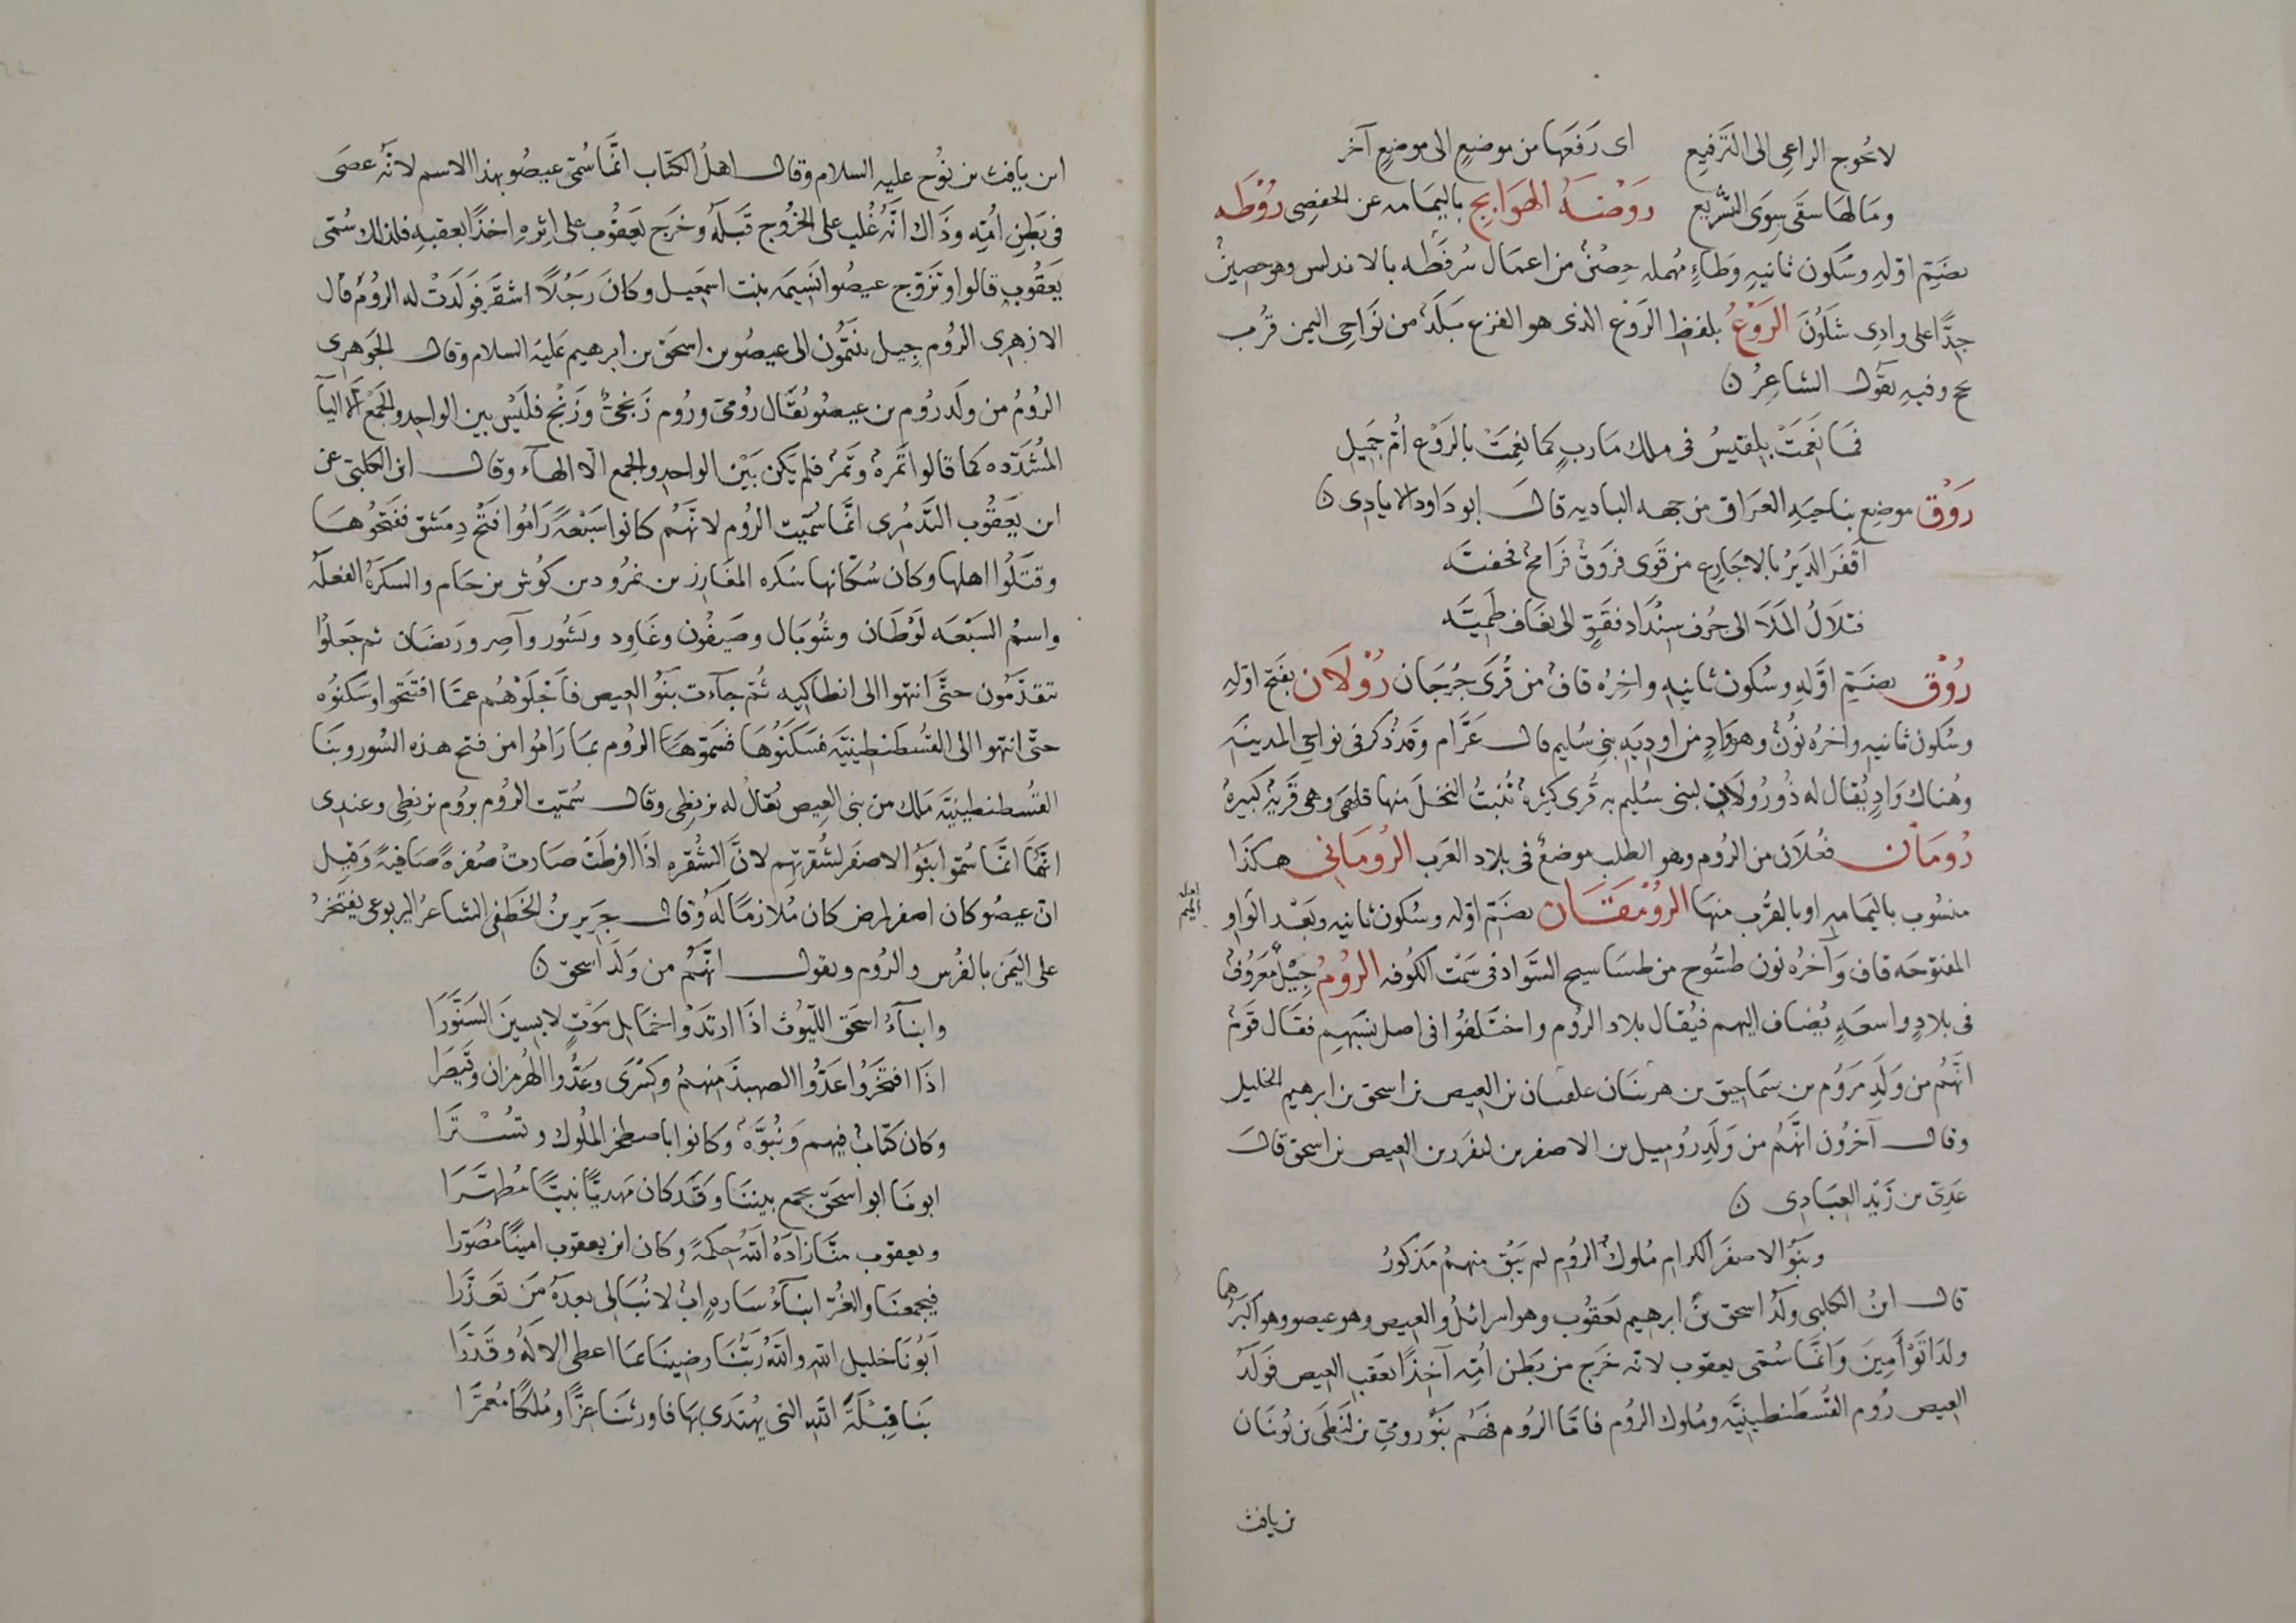 لا تحُوج الراعِى الى التَرفيعِ اى رَفَعَها من موضعٍ الى موضعٍ آخر
ومَا لهَا سقَى سِوَى السَّريع رَوضَهُ الهَوَابجِ باليمامه عن الحفصِى رُوْطَه
بضَمِّ اوّلهِ وسكون ثانيهِ وَطاءٍ مُهمله حِصْنٌ من اعمَال سُرقُطَه بالاندلس وهو حصينٌ
جِدًّا على وادِى شَلُونَ الرَوْعُ بلفظِ الرَوْع الذى هو الفزع بَلَدٌ من نَوَاحِى اليمن قرُب
لحج وفيهِ يقَول الشاعِرُ ن
فمَا نَعِمَتْ بِلقيسُ فى ملك مَاربٍ كما نعِمَتْ بالرَوْع اُمّ جَميلِ
رَوْق موضِع بناحيَهِ العرَاق من جهه الباديه قالَ ابو داود الايادِى ن
اَقفَرَ الدَيْرُ بالاجَارِع من قَوَى فرَوقٌ فرَامحٌ فخفيَّه
فتلَالُ المَلَا الى جُرف سِنْدَاد فقَوٍّ الى نعَاف طَميَّه
رُوْق بضَمِّ اَوَّلهِ وسُكون ثانيهِ واخِرُه قافٌ من قُرَى جرُجَان رُوْلَان بفَتح اوّلهِ
وسُكون ثانيهِ واخرُه نُونٌ وهو وَادٍ من اودِيَهِ بنى سُليم قال عَرَّام وقَد ذُكر فى نواحِى المدينَه
وهُناك وَادٍ يُقال له ذُو رُولَان لبنى سُليم به قُرى كثيره تُنبتُ النخلَ منها قلهَى وهى قَريَهٌ كبيرهٌ
رُومَان فعُلَان من الرُوم وهو الطلب موضعٌ فى بلاد العَرَب الرُومَانِى هكذَا
منسُوب باليمَامه او بالقُرب منها الرُومَقَان بضَمِّ اوّله وسُكون ثانيه وبَعْد الوَاو
اصله الميم
المفتوحَه قاف وَآخرُه نون طسُّوج من طسَاسيح السّوَاد فى سَمْت الكُوفه الرُومُ جِيْلٌ مَعرُوفٌ
فى بلادٍ واسعَهٍ يُضاف اليهم فيُقال بلاد الرُوم واختَلفُوا فى اصل نسَبهِم فقَال قَومٌ
انَّهُم من وَلَدِ مَرُوم بن سمَاحِيق بن هرينَان علقان بن العِيص بن اسحق بن ابرهيم الخليل
وقال آخرُون انّهُم من وَلَدِ رُوميل بن الاصفر بن ليفرر بن العِيص بن اسحق قالَ
عَدِىّ بن زَيْدٍ العبَادِى ن
وبنَوُ الاصفرَ الكرام مُلوكُ الرُومِ لم يَبْق منهمُ مَذكورُ
قال ابنُ الكلبى وُلدَ اسحق بنَ ابرهيم يَعقوُب وهو اسرائلُ والعِيص وهو عيصو وهو اكبرهما
ولدَا تَوْأَمِينَ وَانَّمَا سُمّى يعقوب لانه خَرَج من بَطن اُمّه آخِذًا بعَقب العِيص فوَلَدُ
العِيص رُوم القُسطَنطينِيَّه ومُلوك الرُوم فامّا الرُوم فهَم بَنُو رومىّ بن لنَطَى بن يُونان
بن يافث
ابن يافث بن نُوح عليه السلام وقال اهلُ الكتَاب انّمَا سُمّى عيصُو بهذا الاسم لانّه عصَى
فى بَطن اُمّه وذَاك انّه غُلب على الخرُوج قَبلَهُ وخرَج يَعقوُب على اثرهِ اخذًا بعقبهِ فلذلك سُمّى
يَعقُوب قالوا وتزَوّج عيصُو انَسِيمه بنت اسمَعيل وكانَ رَجُلًا اشقرَ فوَلَدَتْ له الرُومُ قال
الازهرى الرُوم جِيل ينتَمُون الى عيصُو بن اسحَق بن ابرهيم عَليه السلام وقال الجَوهرِى
الرُومُ من ولَد رُوم بن عيصُو يُقَال رُومىّ ورُوم زَنجىٌّ وزَنْجٌ فليَسْ بين الواحِد والجَمع الّا اليا
المشُدّده كما قالوا تَمره وتَمرٌ فلم يَكن بَيْن الواحِد والجمع الّا الهاء وقال ابن الكلبىّ عن
ابن يَعقُوب التَدمُرى انّمَا سُمّيت الرُوم لانّهُم كانوا سَبْعَهً رَامُوا فتَح دِمَشق ففتحُوهَا
وقتَلُوا اهلها وكان سُكّانها سَكره المغَارِز بن نمرُود بن كوُش بن حَام والسكرَه الفعلَه
واسمُ السَبْعَه لَوُطَان وشُوبَال وصَيفُون وغَاوِد وبَشُور وآصِر ورَيضَان ثم جَعَلوُا
يتقدّمُون حتَّى انتهوا الى انطاكيه ثُمّ جآءت بَنوُ العِيص فاَجْلَوْهُم عمّا افتتَحوا وسَكنوُه
حتّى انتهوا الى القسُطنطينيّه فسَكَنوُهَا فسَمّوهَا الرُوم بمَا رَامُوا من فتح هذه السُور وبَنَا
القسُطنطينيّه مَلك من بنى العِيص يُقال له بزنطِى وقال سُمّيت الرُوم برُوم بزنطِى وعندِى
انّهم انّمَا سُمّوا بنَوُ الاصفَر لشُقرتهم لانَّ الشُقره اذَا افرطَتْ صَارتْ صُفرهً صَافيهً وَقيل
انّ عيصُو كان اصفر لمرض كان مُلازمًا لهُ وقال جَرِير بنُ الخَطَفى الشاعرُ اليربوعى يفتَخرُ
على اليمَن بالفُرس والرُوم ويقول انَّهُم من وَلَد اَسحق ن
وابناءُ اسحَق اللّيوُث اذَا ارتدَوا حَمَايل مَوتٍ لابسِينَ السَنَّوَرَا
اذَا افتخَرُوا عَدُّوا الصهبذَ منهمُ وكسْرَى وعَدُّوا الهُرمزان وقَيصَرا
وكان كتَابٌ فيهم وَنُبوَّهٌ وكانوا باصطخر الملُوك وتسُْتَرَا
ابونَا ابو اسحَق يجمع بيننا وقَد كان مَهديًّا نبيًّا مُطهّرَا
ويعقوب منّا زادَهُ الله حِكمهً وكان ابن يعقوب امينًا مُصَوّرا
فيجمعنَا والغُرَّ ابنَآءُ سَارهٍ ابٌ لا نُبَالى بعدهُ مَن تعَذَّرَا
اَبُونَا خليل الله واللهُ رَبُّنَا رضينَا بمَا اعطى الالَهُ وقَدّرَا
بَنا قِبلَةَ الله التى يهُتَدى بهَا فاورثَنَا عزًّا ومُلكًا مُعمّرَا